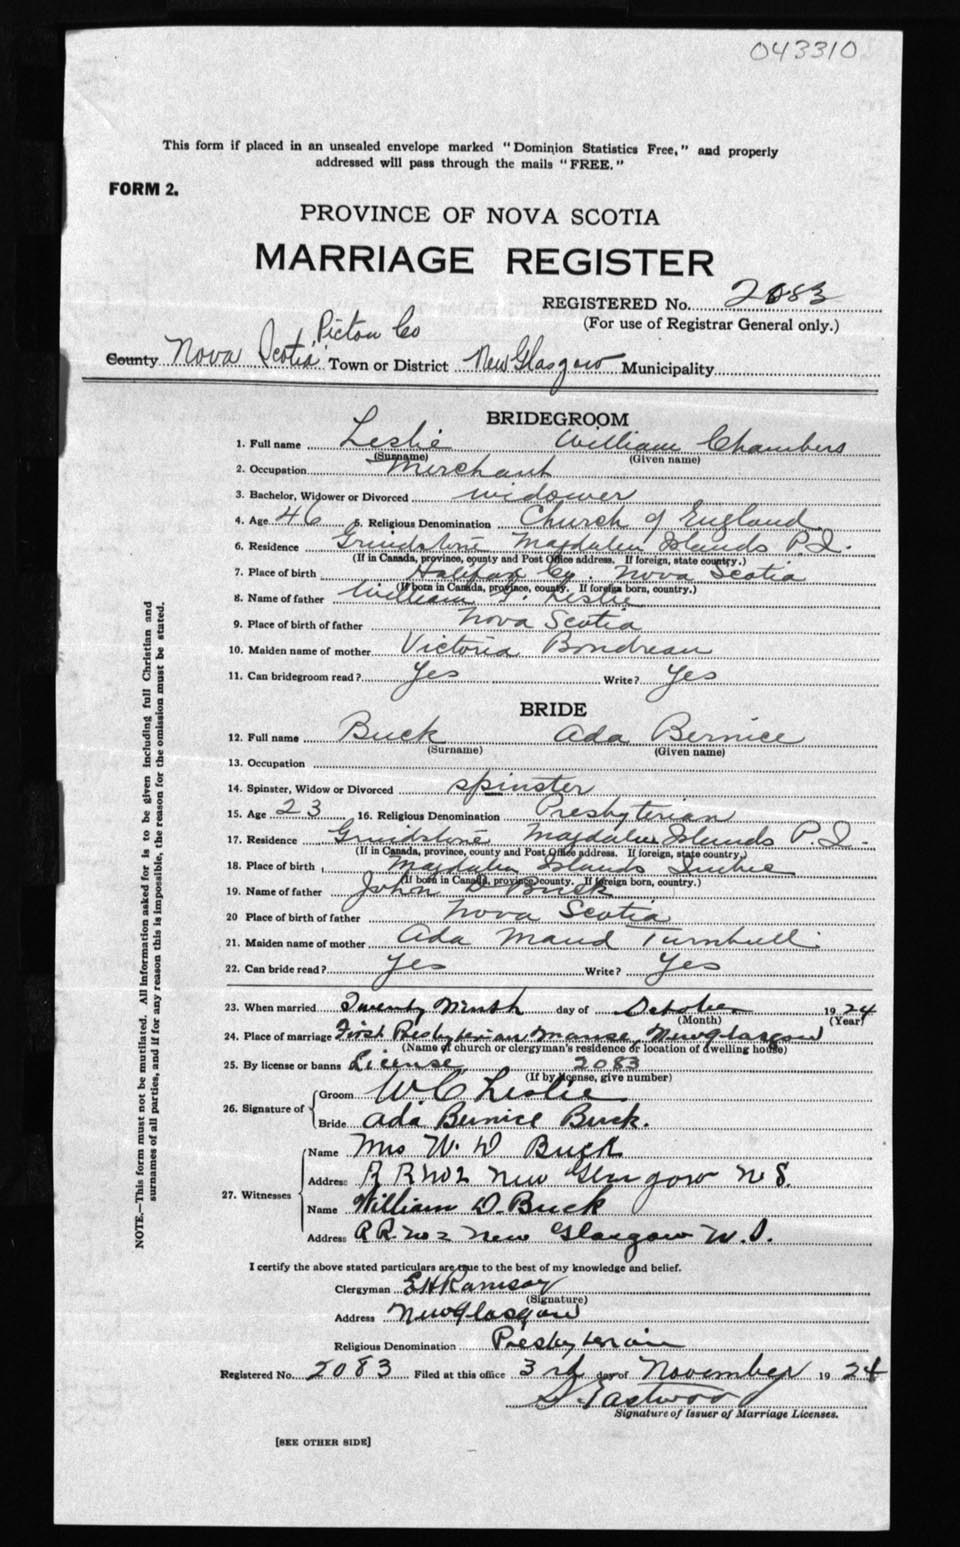 043310
This form if placed in an unsealed envelope marked "Dominion Statistics Free," and properly
addressed will pass through the mails "FREE."
FORM 2.
PROVINCE OF NOVA SCOTIA
MARRIAGE REGISTER
REGISTERED No. 2083
(For use of Registrar General only.)
Pictou Co
County Nova Scotia Town or District New Glasgow Municipality
BRIDEGROOM
1. Full name Leslie William Chambers
(Surname) (Given name)
2. Occupation Merchant
3. Bachelor, Widower or Divorced widower
4. Age 46 5. Religious Denomination Church of England
6. Residence Grindstone Magdalen Islands P.I.
(If in Canada, province, county and Post Office address. If foreign, state country.)
7. Place of birth Halifax Co. Nova Scotia
(If born in Canada, province, county. If foreign born, country.)
8. Name of father William Leslie
9. Place of birth of father Nova Scotia
10. Maiden name of mother Victoria Bondreau
11. Can bridegroom read? Yes Write? Yes
BRIDE
12. Full name Buck Ada Bernice
(Surname) (Given name)
13. Occupation
14. Spinster, Widow or Divorced spinster
15. Age 23 16. Religious Denomination Presbyterian
17. Residence Grindstone Magdalen Islands P.I.
(If in Canada, province, county and Post Office address. If foreign, state country.)
18. Place of birth Magdalen Islands Quebec
(If born in Canada, province, county. If foreign born, country.)
19. Name of father John D Buck
20 Place of birth of father Nova Scotia
21. Maiden name of mother Ada Maud Turnbull
22. Can bride read? Yes Write? Yes
23. When married Twenty Ninth day of October 1924
(Month) (Year)
24. Place of marriage First Presbyterian Manse, New Glasgow
(Name of church or clergyman's residence or location of dwelling house)
25. By license or banns License 2083
(If by license, give number)
26. Signature of Groom W C Leslie
Bride Ada Bernice Buck.
27. Witnesses Name Mrs W. D Buck
Address R R No 2 New Glasgow N S.
Name William D. Buck
Address R R. No 2 New Glasgow N. S.
I certify the above stated particulars are true to the best of my knowledge and belief.
Clergyman E H Ramsay
(Signature)
Address New Glasgow
Religious Denomination Presbyterian
Registered No. 2083 Filed at this office 3rd day of November 1924
Eastwood
Signature of Issuer of Marriage Licenses.
[SEE OTHER SIDE]
NOTE.—This form must not be mutilated. All information asked for is to be given including full Christian and
surnames of all parties, and if for any reason this is impossible, the reason for the omission must be stated.